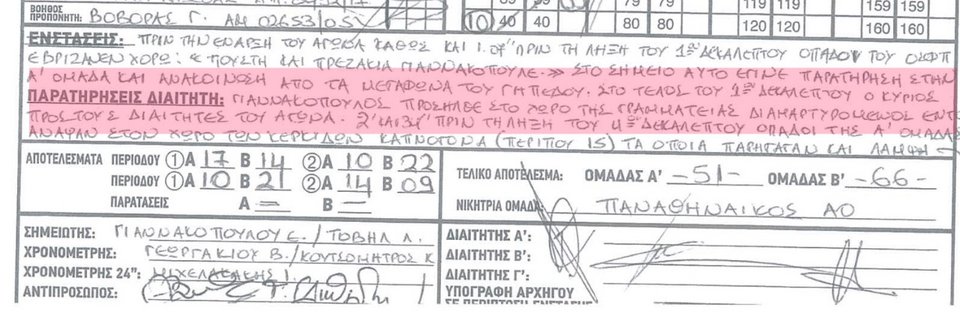 ΒΟΗΘΟΣ ΠΡΟΠΟΝΗΤΗ: ΒΟΒΟΡΑΣ Γ. ΑΜ 02653/05
39 39 79 79 159 159
10 40 40 80 80 120 120 160 160
ΕΝΣΤΑΣΕΙΣ: ΠΡΙΝ ΤΗΝ ΕΝΑΡΞΗ ΤΟΥ ΑΓΩΝΑ ΚΑΘΩΣ ΚΑΙ ΠΡΙΝ ΤΗ ΛΗΞΗ ΤΟΥ 1ου ΔΕΚΑΛΕΠΤΟΥ ΟΠΑΔΟΙ ΤΟΥ ΟΣΦΠ
ΕΒΡΙΖΑΝ ΕΝ ΧΟΡΩ: «ΠΟΥΣΤΗ ΚΑΙ ΠΡΕΖΑΚΙΑ ΓΙΑΝΝΑΚΟΠΟΥΛΕ.» ΣΤΟ ΣΗΜΕΙΟ ΑΥΤΟ ΕΓΙΝΕ ΠΑΡΑΤΗΡΗΣΗ ΣΤΗΝ
Α' ΟΜΑΔΑ ΚΑΙ ΑΝΑΚΟΙΝΩΣΗ ΑΠΟ ΤΑ ΜΕΓΑΦΩΝΑ ΤΟΥ ΓΗΠΕΔΟΥ. ΣΤΟ ΤΕΛΟΣ ΤΟΥ 1ου ΔΕΚΑΛΕΠΤΟΥ Ο ΚΥΡΙΟΣ
ΠΑΡΑΤΗΡΗΣΕΙΣ ΔΙΑΙΤΗΤΗ: ΓΙΑΝΝΑΚΟΠΟΥΛΟΣ ΠΡΟΣΗΛΘΕ ΣΤΟ ΧΩΡΟ ΤΗΣ ΓΡΑΜΜΑΤΕΙΑΣ ΔΙΑΜΑΡΤΥΡΟΜΕΝΟΣ ΕΝΤΟΝΑ
ΠΡΟΣ ΤΟΥΣ ΔΙΑΙΤΗΤΕΣ ΤΟΥ ΑΓΩΝΑ. 2' ΚΑΙ ΠΡΙΝ ΤΗ ΛΗΞΗ ΤΟΥ 4ου ΔΕΚΑΛΕΠΤΟΥ ΟΠΑΔΟΙ ΤΗΣ Α' ΟΜΑΔΑΣ
ΑΝΑΨΑΝ ΣΤΟΝ ΧΩΡΟ ΤΩΝ ΚΕΡΚΙΔΩΝ ΚΑΠΝΟΓΟΝΑ (ΠΕΡΙΠΟΥ 15) ΤΑ ΟΠΟΙΑ ΠΑΡΗΓΑΓΑΝ ΚΑΙ ΛΑΜΨΗ
ΑΠΟΤΕΛΕΣΜΑΤΑ ΠΕΡΙΟΔΟΥ ①Α 17 Β 14 ②Α 10 Β 22
ΠΕΡΙΟΔΟΥ ①Α 10 Β 21 ②Α 14 Β 09
ΠΑΡΑΤΑΣΕΙΣ Α — Β —
ΤΕΛΙΚΟ ΑΠΟΤΕΛΕΣΜΑ: ΟΜΑΔΑΣ Α' -51- ΟΜΑΔΑΣ Β' -66-
ΝΙΚΗΤΡΙΑ ΟΜΑΔΑ: ΠΑΝΑΘΗΝΑΙΚΟΣ ΑΟ
ΣΗΜΕΙΩΤΗΣ: ΓΙΑΝΝΑΚΟΠΟΥΛΟΥ Ε. / ΤΟΒΗΛ Λ.
ΧΡΟΝΟΜΕΤΡΗΣ: ΓΕΩΡΓΑΚΙΟΥ Β. / ΚΟΥΤΣΟΜΗΤΡΟΣ Κ
ΧΡΟΝΟΜΕΤΡΗΣ 24": ΜΙΧΕΛΑΚΑΚΗΣ Ι.
ΑΝΤΙΠΡΟΣΩΠΟΣ:
ΔΙΑΙΤΗΤΗΣ Α':
ΔΙΑΙΤΗΤΗΣ Β':
ΔΙΑΙΤΗΤΗΣ Γ':
ΥΠΟΓΡΑΦΗ ΑΡΧΗΓΟΥ
ΣΕ ΠΕΡΙΠΤΩΣΗ ΕΝΣΤΑΣΗΣ